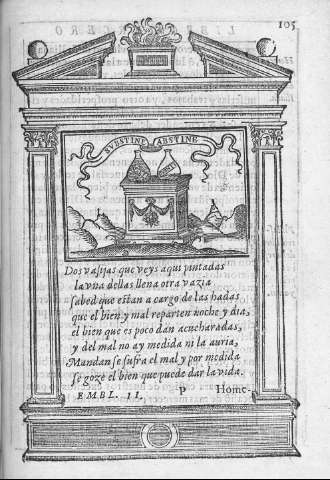 105
SVBSTINE ABSTINE
Dos vasijas que veys aqui pintadas
la vna dellas llena otra vazia
sabed que estan a cargo de las hadas
que el bien y mal reparten noche y dia,
el bien que es poco dan acucharadas,
y del mal no ay medida ni la auria,
Mandan se sufra el mal y por medida
se goze el bien que puede dar la vida.
EMBL. 11. P Home-